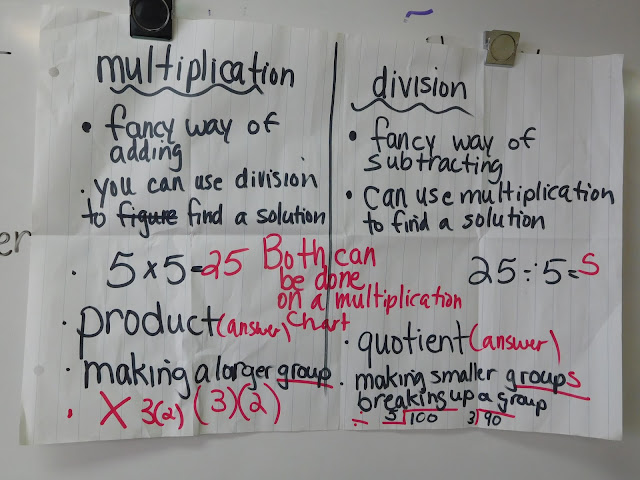 multiplication
• fancy way of
adding
· you can use division
to figure find a solution
· 5 x 5 = 25
Both can
be done
on a multiplication
chart
· product (answer)
· making a larger group
· X 3(2) (3)(2)
division
• fancy way of
subtracting
• can use multiplication
to find a solution
25 ÷ 5 = 5
· quotient (answer)
· making smaller groups
breaking up a group
÷ 5⟌100 3⟌90
er